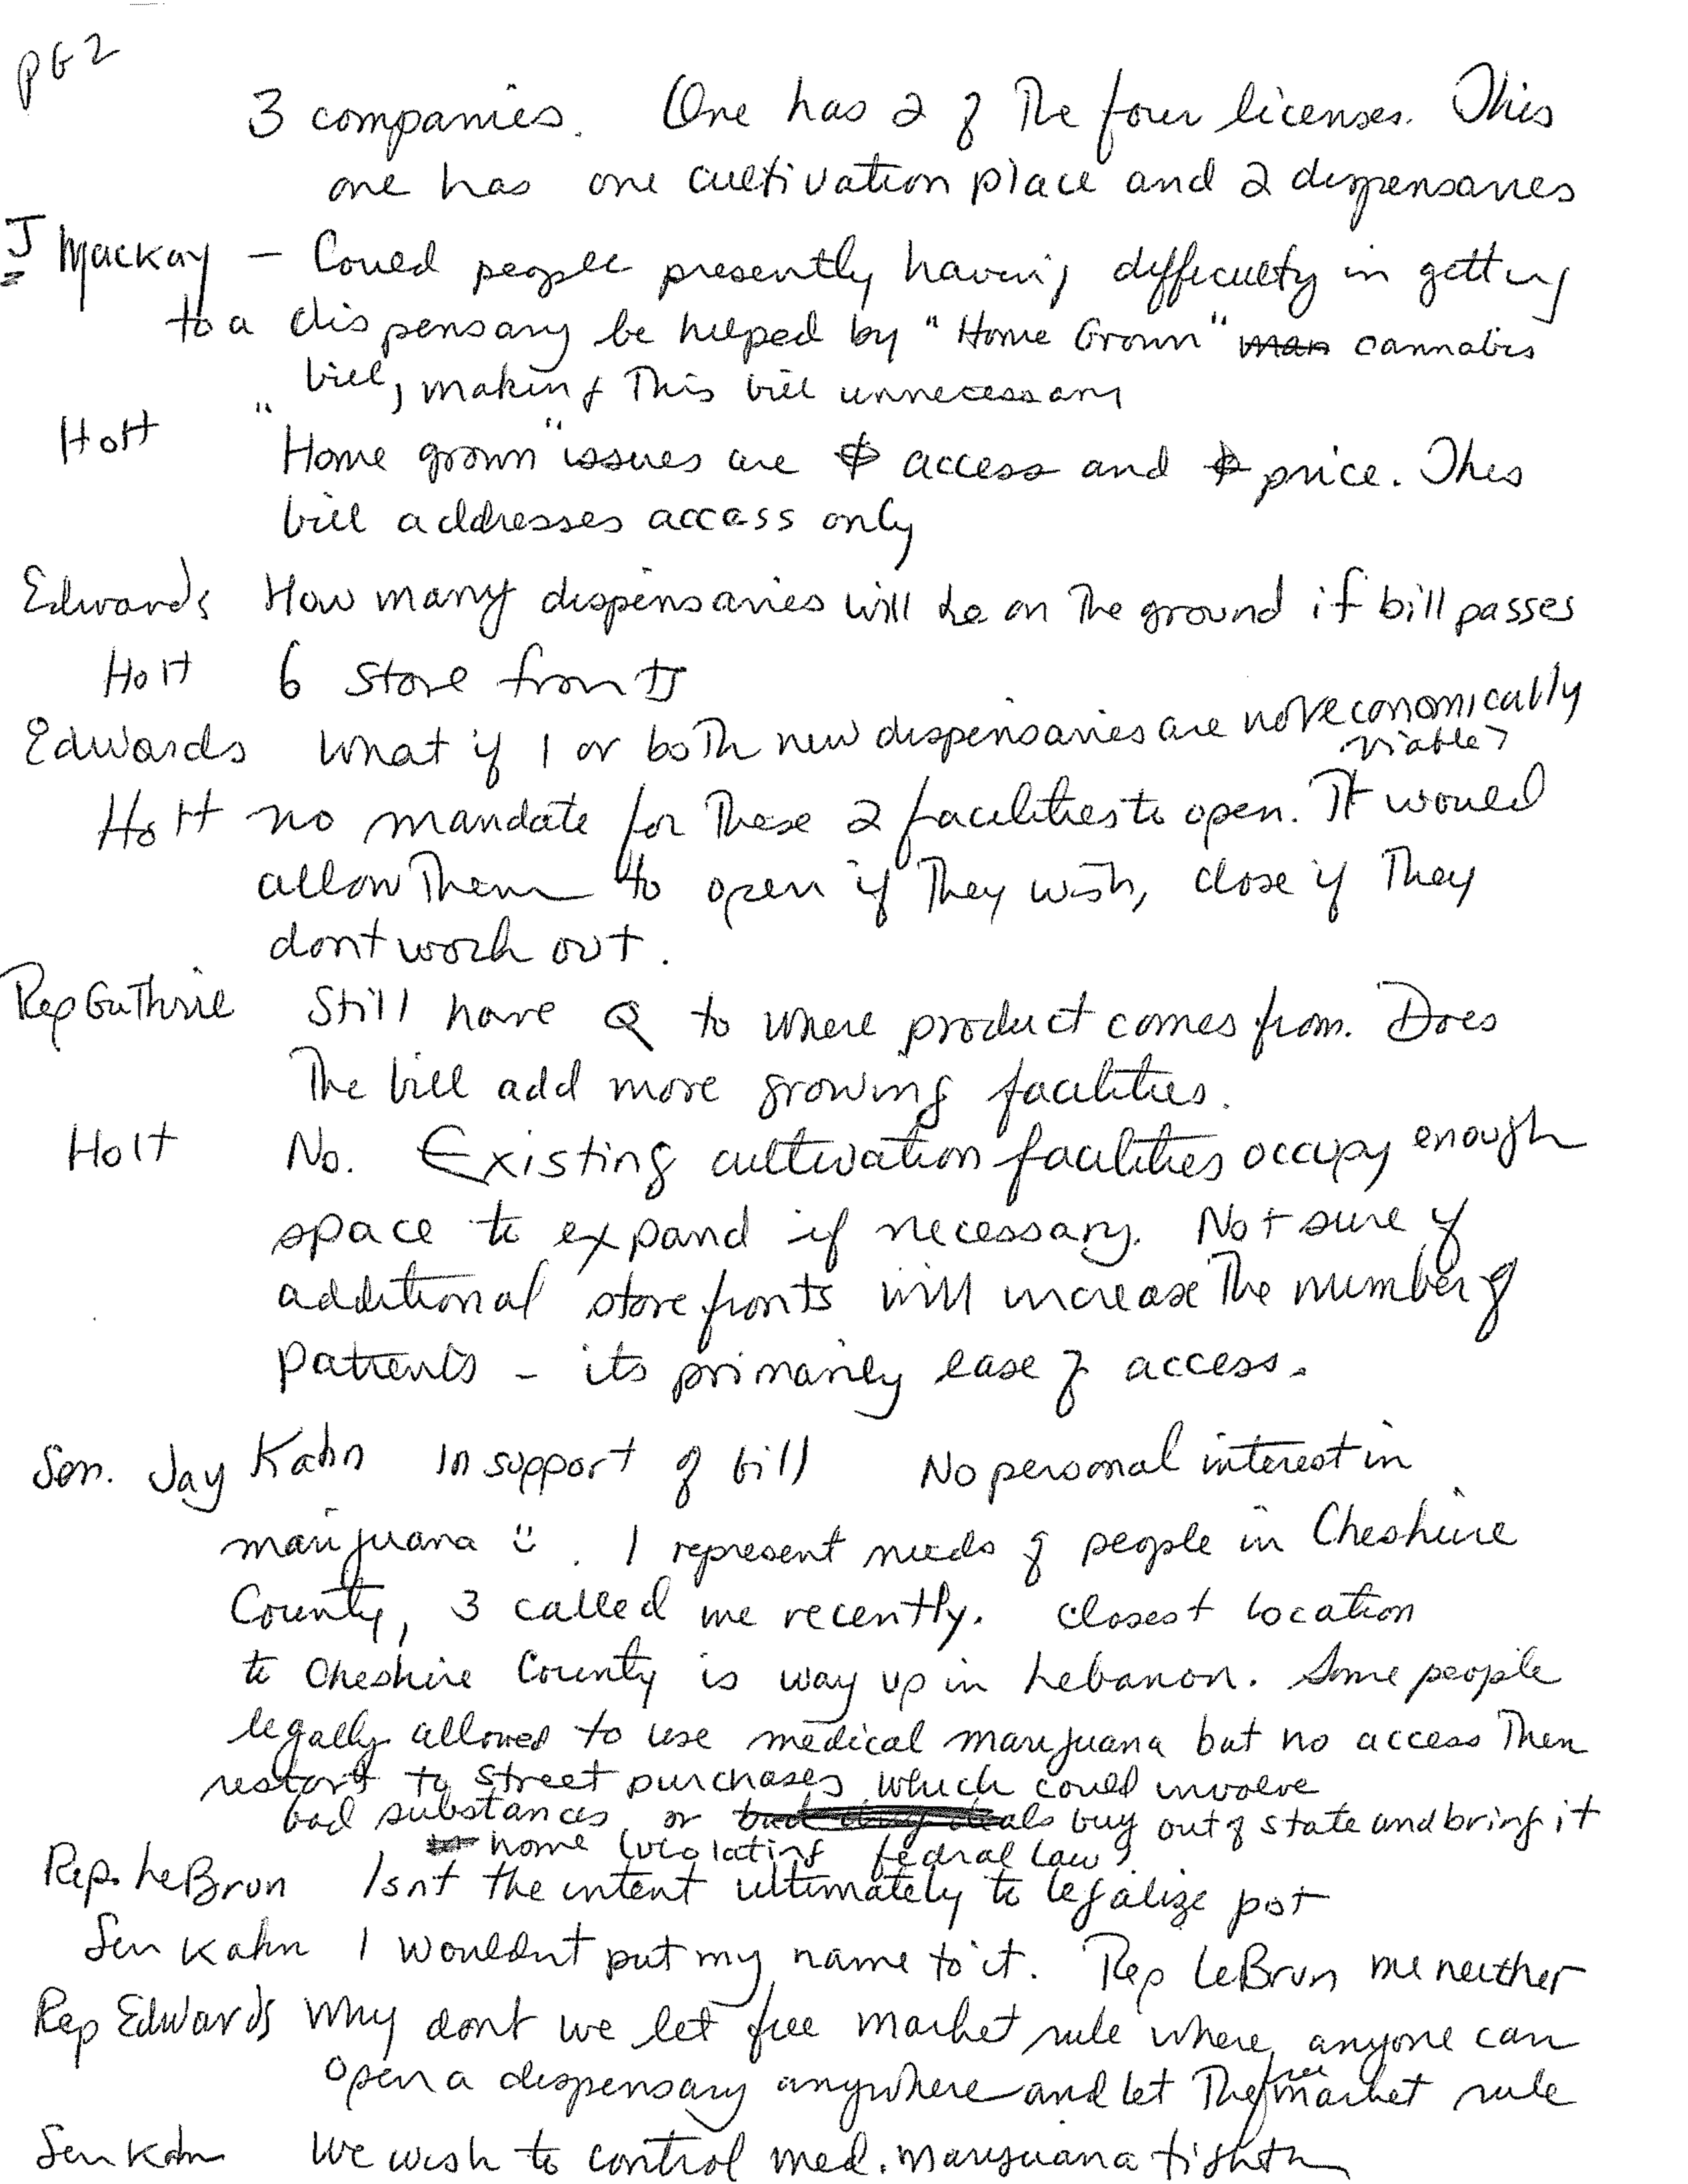 PG 2
3 companies. One has 2 of the four licenses. This
one has one cultivation place and 2 dispensaries
J Mackay — Could people presently having difficulty in getting
to a dispensary be helped by "Home Grown" cannabis
bill, making this bill unnecessary
Holt "Home grown" issues are access and price. This
bill addresses access only
Edwards How many dispensaries will be on the ground if bill passes
Holt 6 store fronts
Edwards What if 1 or both new dispensaries are not economically
viable?
Holt no mandate for these 2 facilities to open. It would
allow them to open if they wish, close if they
dont work out.
Rep Guthrie Still have Q to where product comes from. Does
the bill add more growing facilities.
Holt No. Existing cultivation facilities occupy enough
space to expand if necessary. Not sure if
additional store fronts will increase the number of
patients - its primarily ease of access.
Sen. Jay Kahn In support of bill No personal interest in
marijuana ü. I represent needs of people in Cheshire
County, 3 called me recently. closest location
to Cheshire County is way up in Lebanon. Some people
legally allowed to use medical marijuana but no access then
resort to street purchases which could involve
bad substances or buy out of state and bring it
home (violating federal law).
Rep. LeBrun Isnt the intent ultimately to legalize pot
Sen Kahn I wouldnt put my name to it. Rep LeBrun me neither
Rep Edwards Why dont we let free market rule where anyone can
open a dispensary anywhere and let the free market rule
Sen Kahn We wish to control med. marijuana tightly